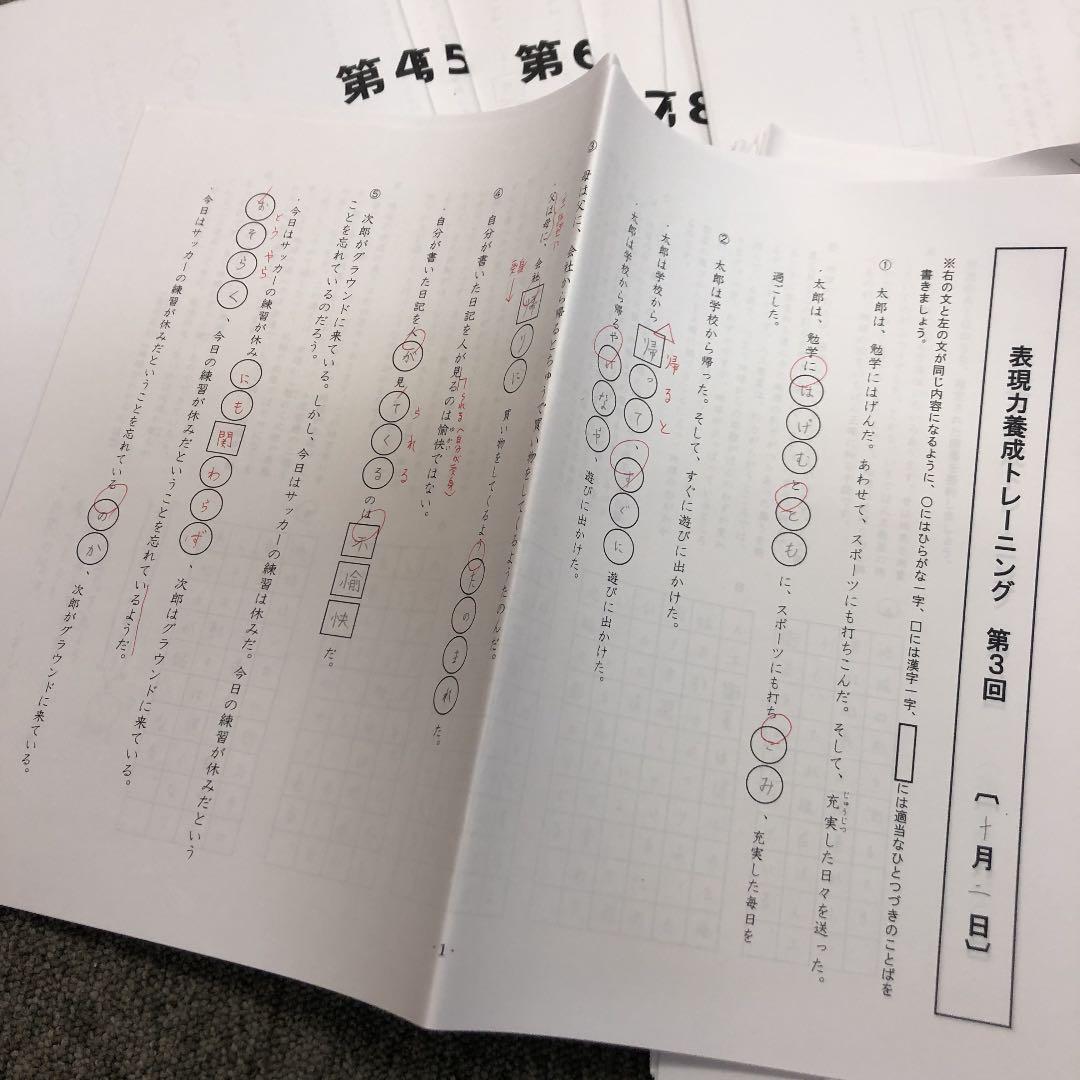 第4
5
第6
7
8
表現力養成トレーニング 第3回 〔十月二日〕
※右の文と左の文が同じ内容になるように、〇にはひらがな一字、口には漢字一字、 には適当なひとつづきのことばを
書きましょう。
① 太郎は、勉学にはげんだ。あわせて、スポーツにも打ちこんだ。そして、充実した日々を送った。
じゅうじつ
・太郎は、勉学にはげむとともに、スポーツにも打ちこみ、充実した毎日を
過ごした。
② 太郎は学校から帰った。そして、すぐに遊びに出かけた。
・太郎は学校から帰って、すぐに遊びに出かけた。
帰ると
・太郎は学校から帰るやいなや、遊びに出かけた。
③ 母は父に、会社から帰るとちゅうで買い物をしてくるようたのんだ。
・父は母に、会社帰りに買い物をしてくるようたのまれた。
④ 自分が書いた日記を人が見るのは愉快ではない。
ゆかい
・自分が書いた日記を人が見てくるのは不愉快だ。
られる
⑤ 次郎がグラウンドに来ている。しかし、今日はサッカーの練習は休みだ。今日の練習が休みだという
ことを忘れているのだろう。
・今日はサッカーの練習が休みにも関わらず、次郎はグラウンドに来ている。
おそらく、今日の練習が休みだということを忘れているようだ。
どうやら
・今日はサッカーの練習が休みだということを忘れているのか、次郎がグラウンドに来ている。
1